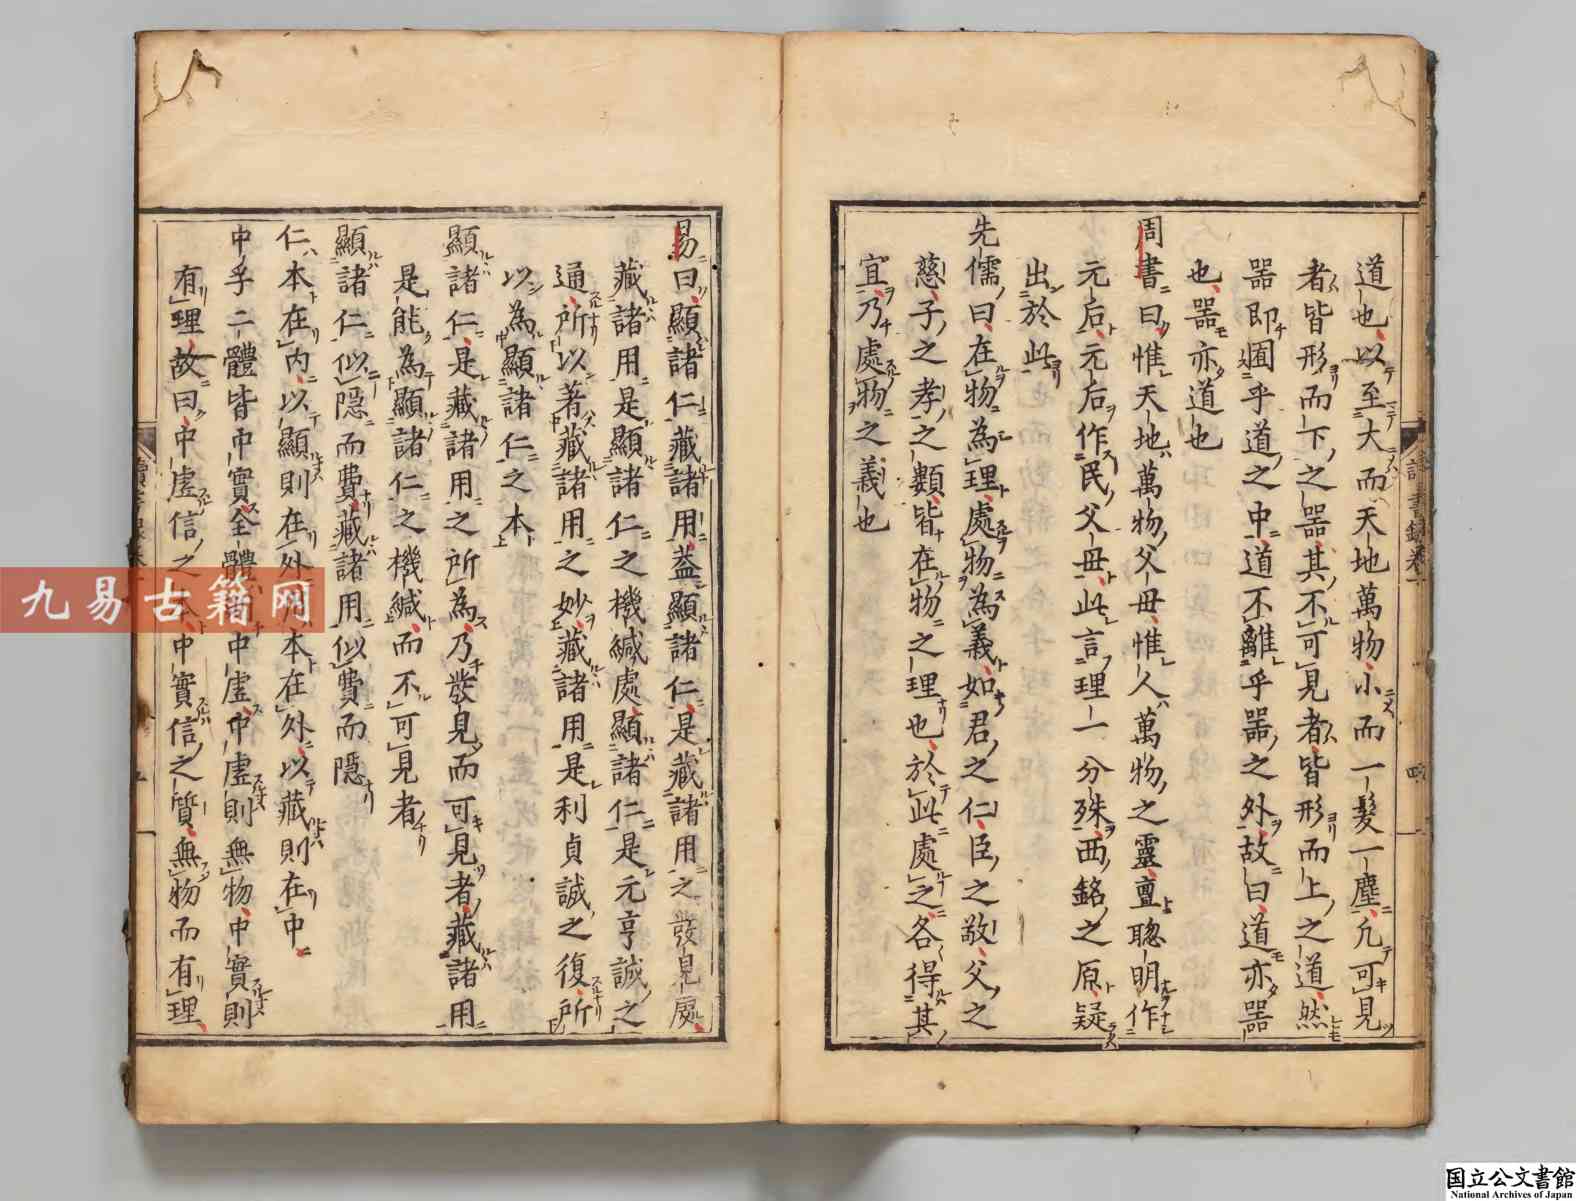 道也以至大而天地萬物小而一髪一塵凢可見
者皆形而下之器其不可見者皆形而上之道然
器即囿乎道之中道不離乎器之外故曰道亦器
也器亦道也
周書曰惟天地萬物父母惟人萬物之靈亶聰明作
元后元后作民父母此言理一分殊西銘之原疑
出於此
先儒曰在物為理處物為義如君之仁臣之敬父之
慈子之孝之類皆在物之理也於此處之各得其
宜乃處物之義也
讀書録卷一
四
易曰顯諸仁藏諸用葢顯諸仁是藏諸用之發見處
藏諸用是顯諸仁之機緘處顯諸仁是元亨誠之
通所以著藏諸用之妙藏諸用是利貞誠之復所
以為顯諸仁之本
顯諸仁是藏諸用之所為乃發見而可見者藏諸用
是能為顯諸仁之機緘而不可見者
顯諸仁似隱而費藏諸用似費而隱
仁本在内以顯則在外用本在外以藏則在中
中孚二體皆中實全體中虛中虛則無物中實則
有理故曰中虛信之本中實信之質無物而有理
九易古籍网
国立公文書館
National Archives of Japan